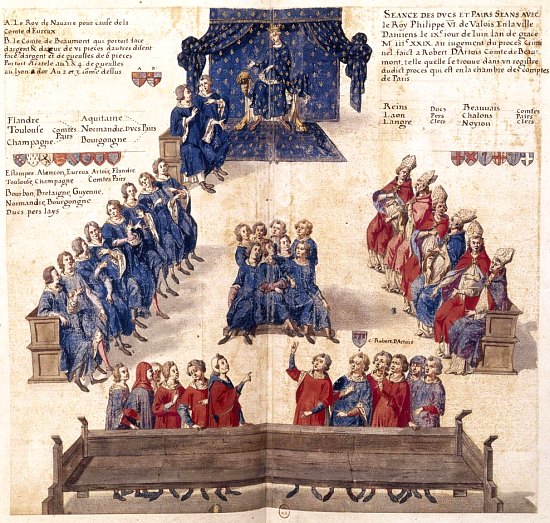 A. Le Roy de Nauare pour cause de la
Comté d'Eureux
B. le Comte de Beaumont qui portoit face
d'argent & d'azur de VI pieces d'autres disent
facé d'argent et de gueulles de 6 pieces
Portoit
au lyon d'or Au 2 et 3 come dessus
A B
SEANCE DES DVCS ET PAIRS SEANS AVEC
le Roy Philippe VI de Valois En la ville
D'amiens le IX.e iour de Iuin l'an de grace
M IIIc XXIX au iugement du procés Crimi
nel faict a Robert D'Artois Comte de Beau
mont, telle qu'elle se trouue dans vn registre
dudict procés qui est en la chambre des comptes
de Paris
Flandre
Toulouse Comtes Pairs
Champagne
Aquitaine
Normandie Ducs Pairs
Bourgongne
Reins
Laon
Langre
Ducs
Pers
clers
Beauuais
Chalons
Noyion
Comtes
Pairs
Clers
Estampes Alencon, Eureux Artois, Flandre
Toulouse Champagne Comtes Pairs
Bourbon, Bretaigne, Guyenne,
Normandie, Bourgongne
Ducs pers lays
c Robert D'Artois